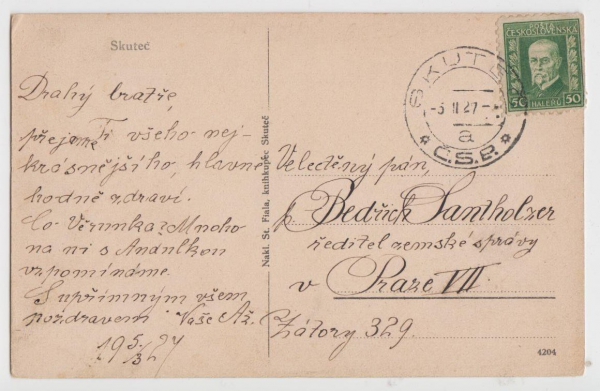 Skuteč
Drahý bratře,
přejeme Ti všeho nej-
krásnějšího, hlavně
hodně zdraví.
Co Věrunka? Mnoho
na ni s Andulkou
vzpomínáme.
S upřímným všem
pozdravem Vaše Až.
19 5/3 27
Nakl. St. Fiala, knihkupec Skuteč
POŠTA
ČESKOSLOVENSKÁ
50 HALÉŘŮ 50
SKUTEČ
-5 II 27-
a
* Č.S.P. *
Velectěný pán,
p. Bedřich Santholzer
ředitel zemské správy
v Praze VII
Zátory 329.
4204